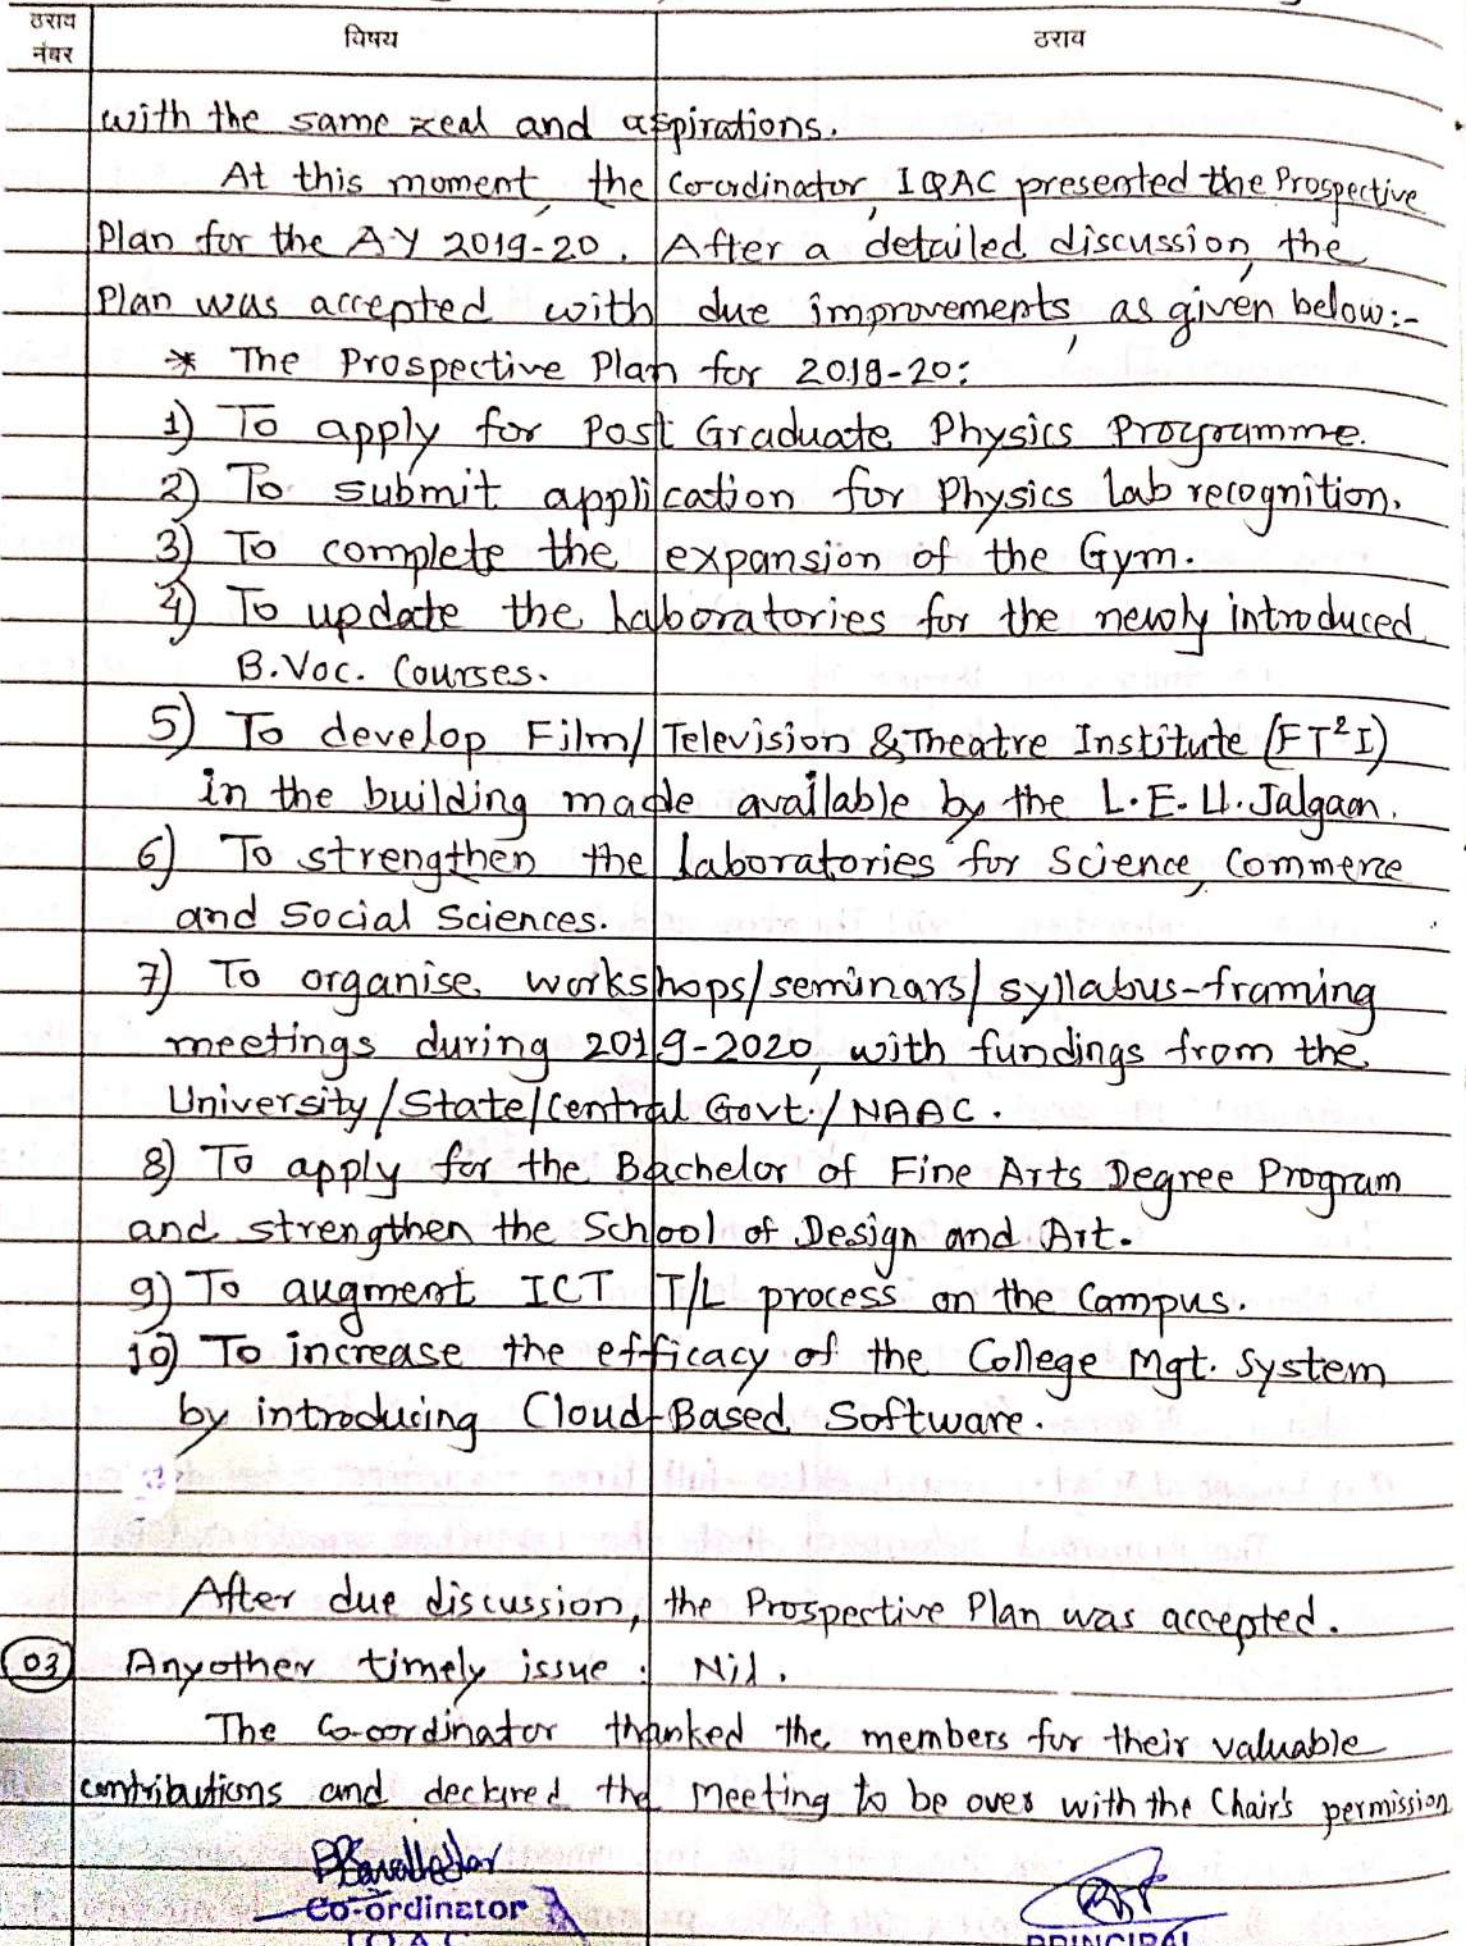 ठराव नंबर विषय ठराव
with the same zeal and aspirations.
At this moment, the Co-ordinator, IQAC presented the Prospective
Plan for the A.Y 2019-20. After a detailed discussion, the
Plan was accepted with due improvements, as given below:-
* The Prospective Plan for 2019-20:
1) To apply for Post Graduate Physics Programme.
2) To submit application for Physics lab recognition.
3) To complete the expansion of the Gym.
4) To update the Laboratories for the newly introduced
B.Voc. Courses.
5) To develop Film/Television & Theatre Institute (FT²I)
in the building made available by the L.E.U. Jalgaon.
6) To strengthen the laboratories for Science, Commerce
and Social Sciences.
7) To organise workshops/seminars/syllabus-framing
meetings during 2019-2020, with fundings from the
University/State/Central Govt./NAAC.
8) To apply for the Bachelor of Fine Arts Degree Program
and strengthen the School of Design and Art.
9) To augment ICT T/L process on the Campus.
10) To increase the efficacy of the College Mgt. System
by introducing Cloud-Based Software.
After due discussion, the Prospective Plan was accepted.
03 Anyother timely issue : Nil.
The Co-ordinator thanked the members for their valuable
contributions and declared the Meeting to be over with the Chair's permission
Co-ordinator
I.Q.A.C
PRINCIPAL